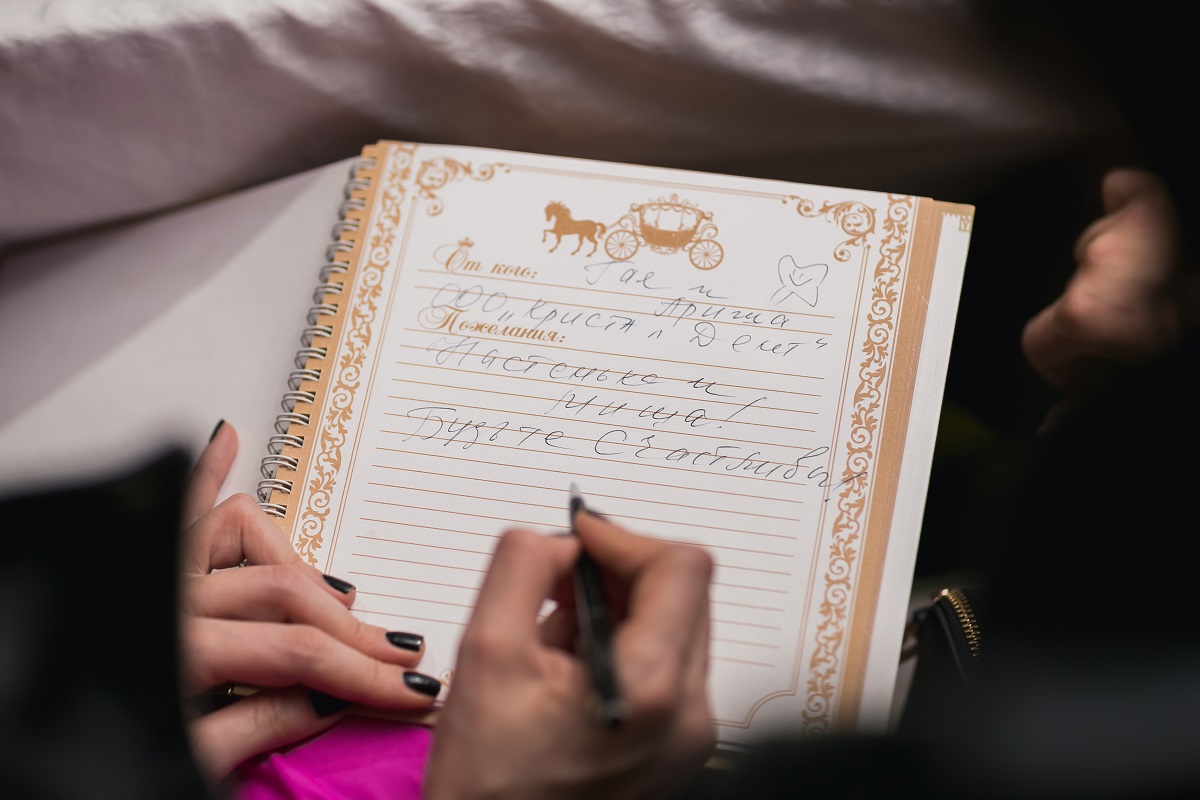 От кого: Гая и
Ариша
ООО „Кристалл Дент"
Пожелания:
Настенька и
Миша!
Будьте Счастливы!